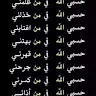 حسبي الله في من ظلمني
حسبي الله في من خذلني
حسبي الله في من اغتابني
حسبي الله في من بهتني
حسبي الله في من قهرني
حسبي الله في من جرحني
حسبي الله في من كسرني
حسبي الله في من أذاني